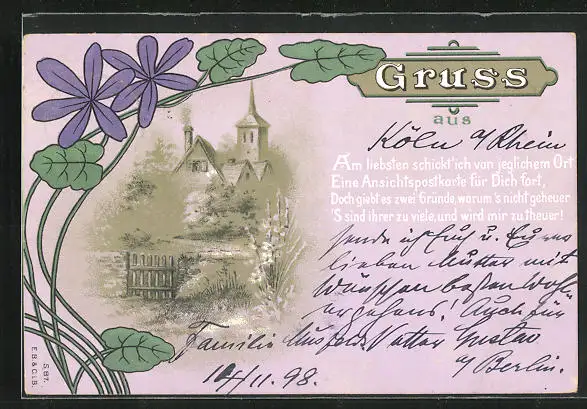 Gruss
aus
Köln a/Rhein
Am liebsten schickt' ich von jeglichem Ort
Eine Ansichtspostkarte für Dich fort,
Doch giebt es zwei Gründe, worum 's nicht geheuer
'S sind ihrer zu viele, und wird mir zu theuer!
sende ich Euch u. Eurer
lieben Mutter mit
Wünschen besten Wohl-
ergehens! Auch für
Familie Vetter Gustav
a/Berlin.
11. 98.
S. 87.
E.B.& C.i.B.